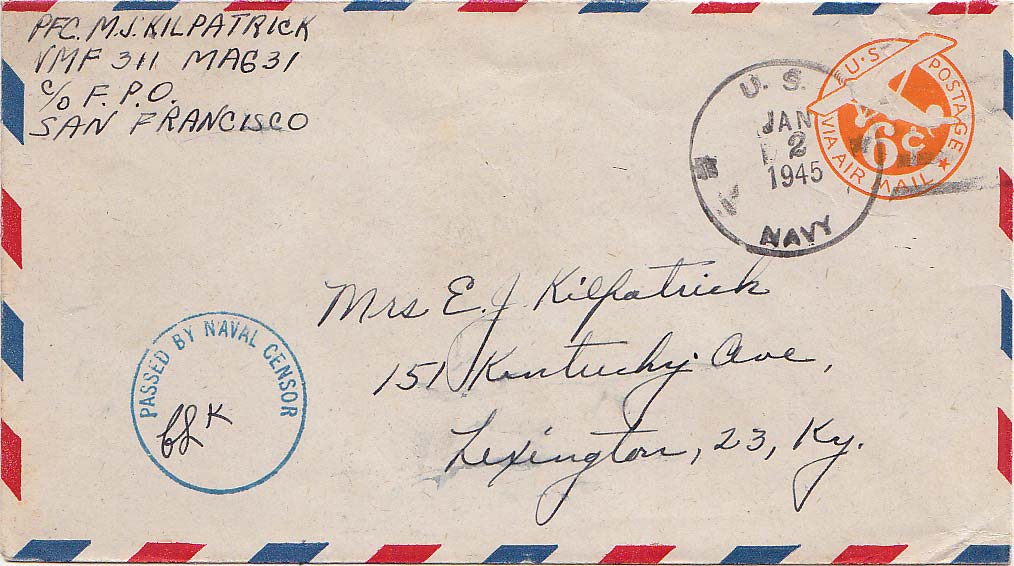 PFC. M.J. KILPATRICK
VMF 311 MAG31
c/o F.P.O.
SAN FRANCISCO
U.S.
JAN
2
1945
NAVY
U.S. POSTAGE
6¢
VIA AIR MAIL
Mrs E. J. Kilpatrick
151 Kentucky Ave,
Lexington, 23, Ky.
PASSED BY NAVAL CENSOR